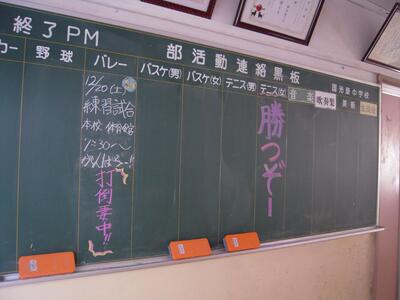 終了PM
部活動連絡黒板
カー
野球
バレー
バスケ(男)
バスケ(女)
テニス(男)
テニス(女)
音楽
吹奏楽
美術
12/20(土)
練習試合
本校 体育館
1:30~
がんばろー!!
打倒妻中!!
勝つぞー